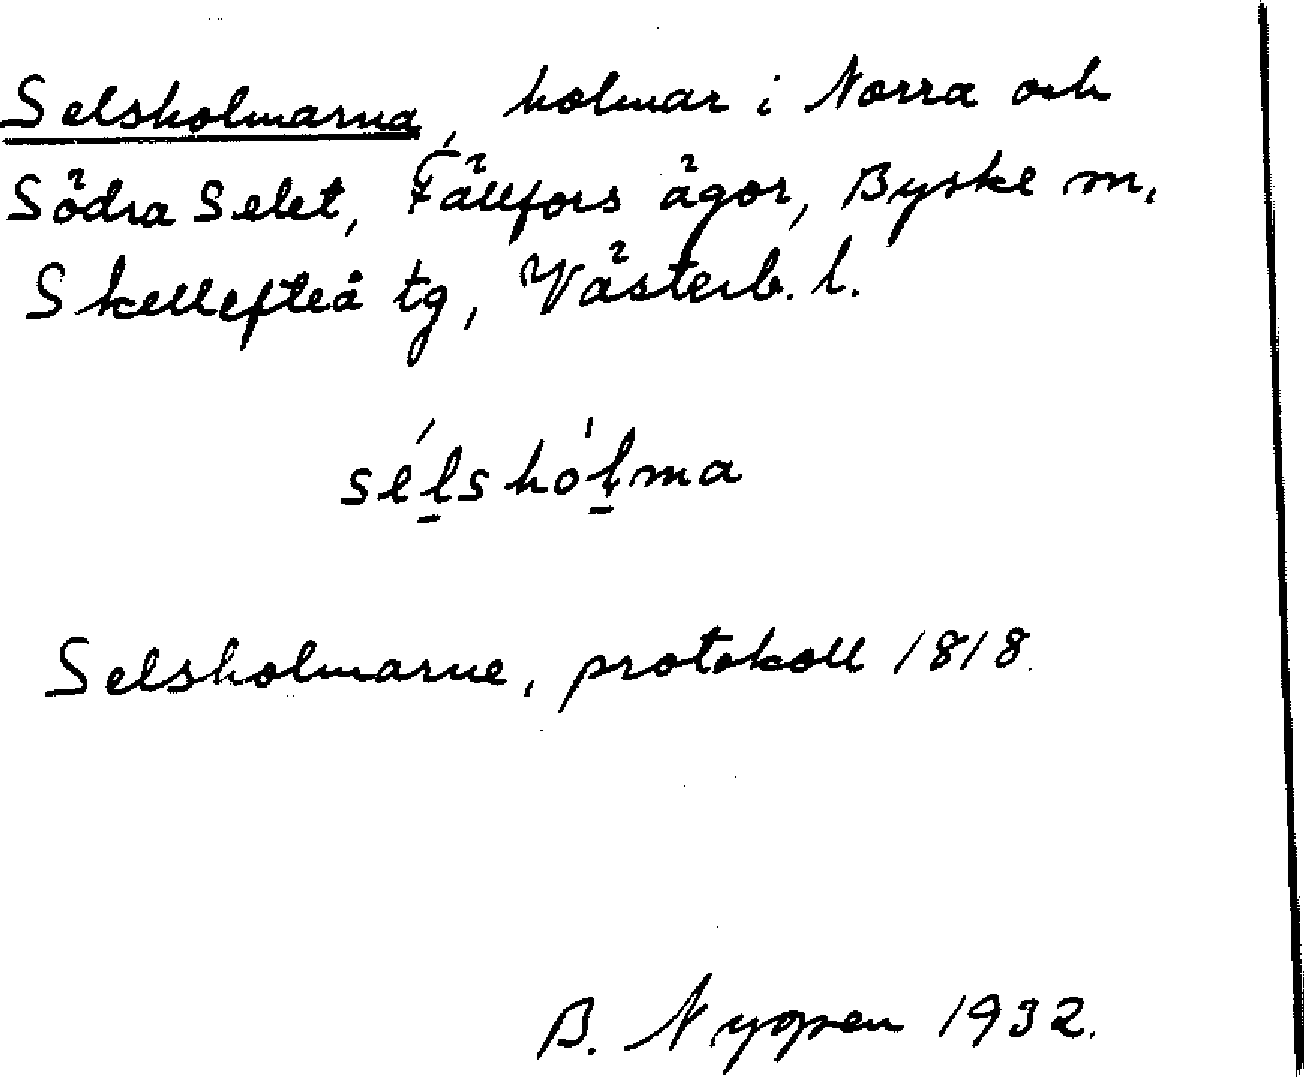 Selsholmarna, holmar i Norra och
Södra Selet, Fällfors ägor, Byske sn,
Skellefteå tg, Västerb. l.
sélshólma
Selsholmarne, protokoll 1818.
B. Nygren 1932.